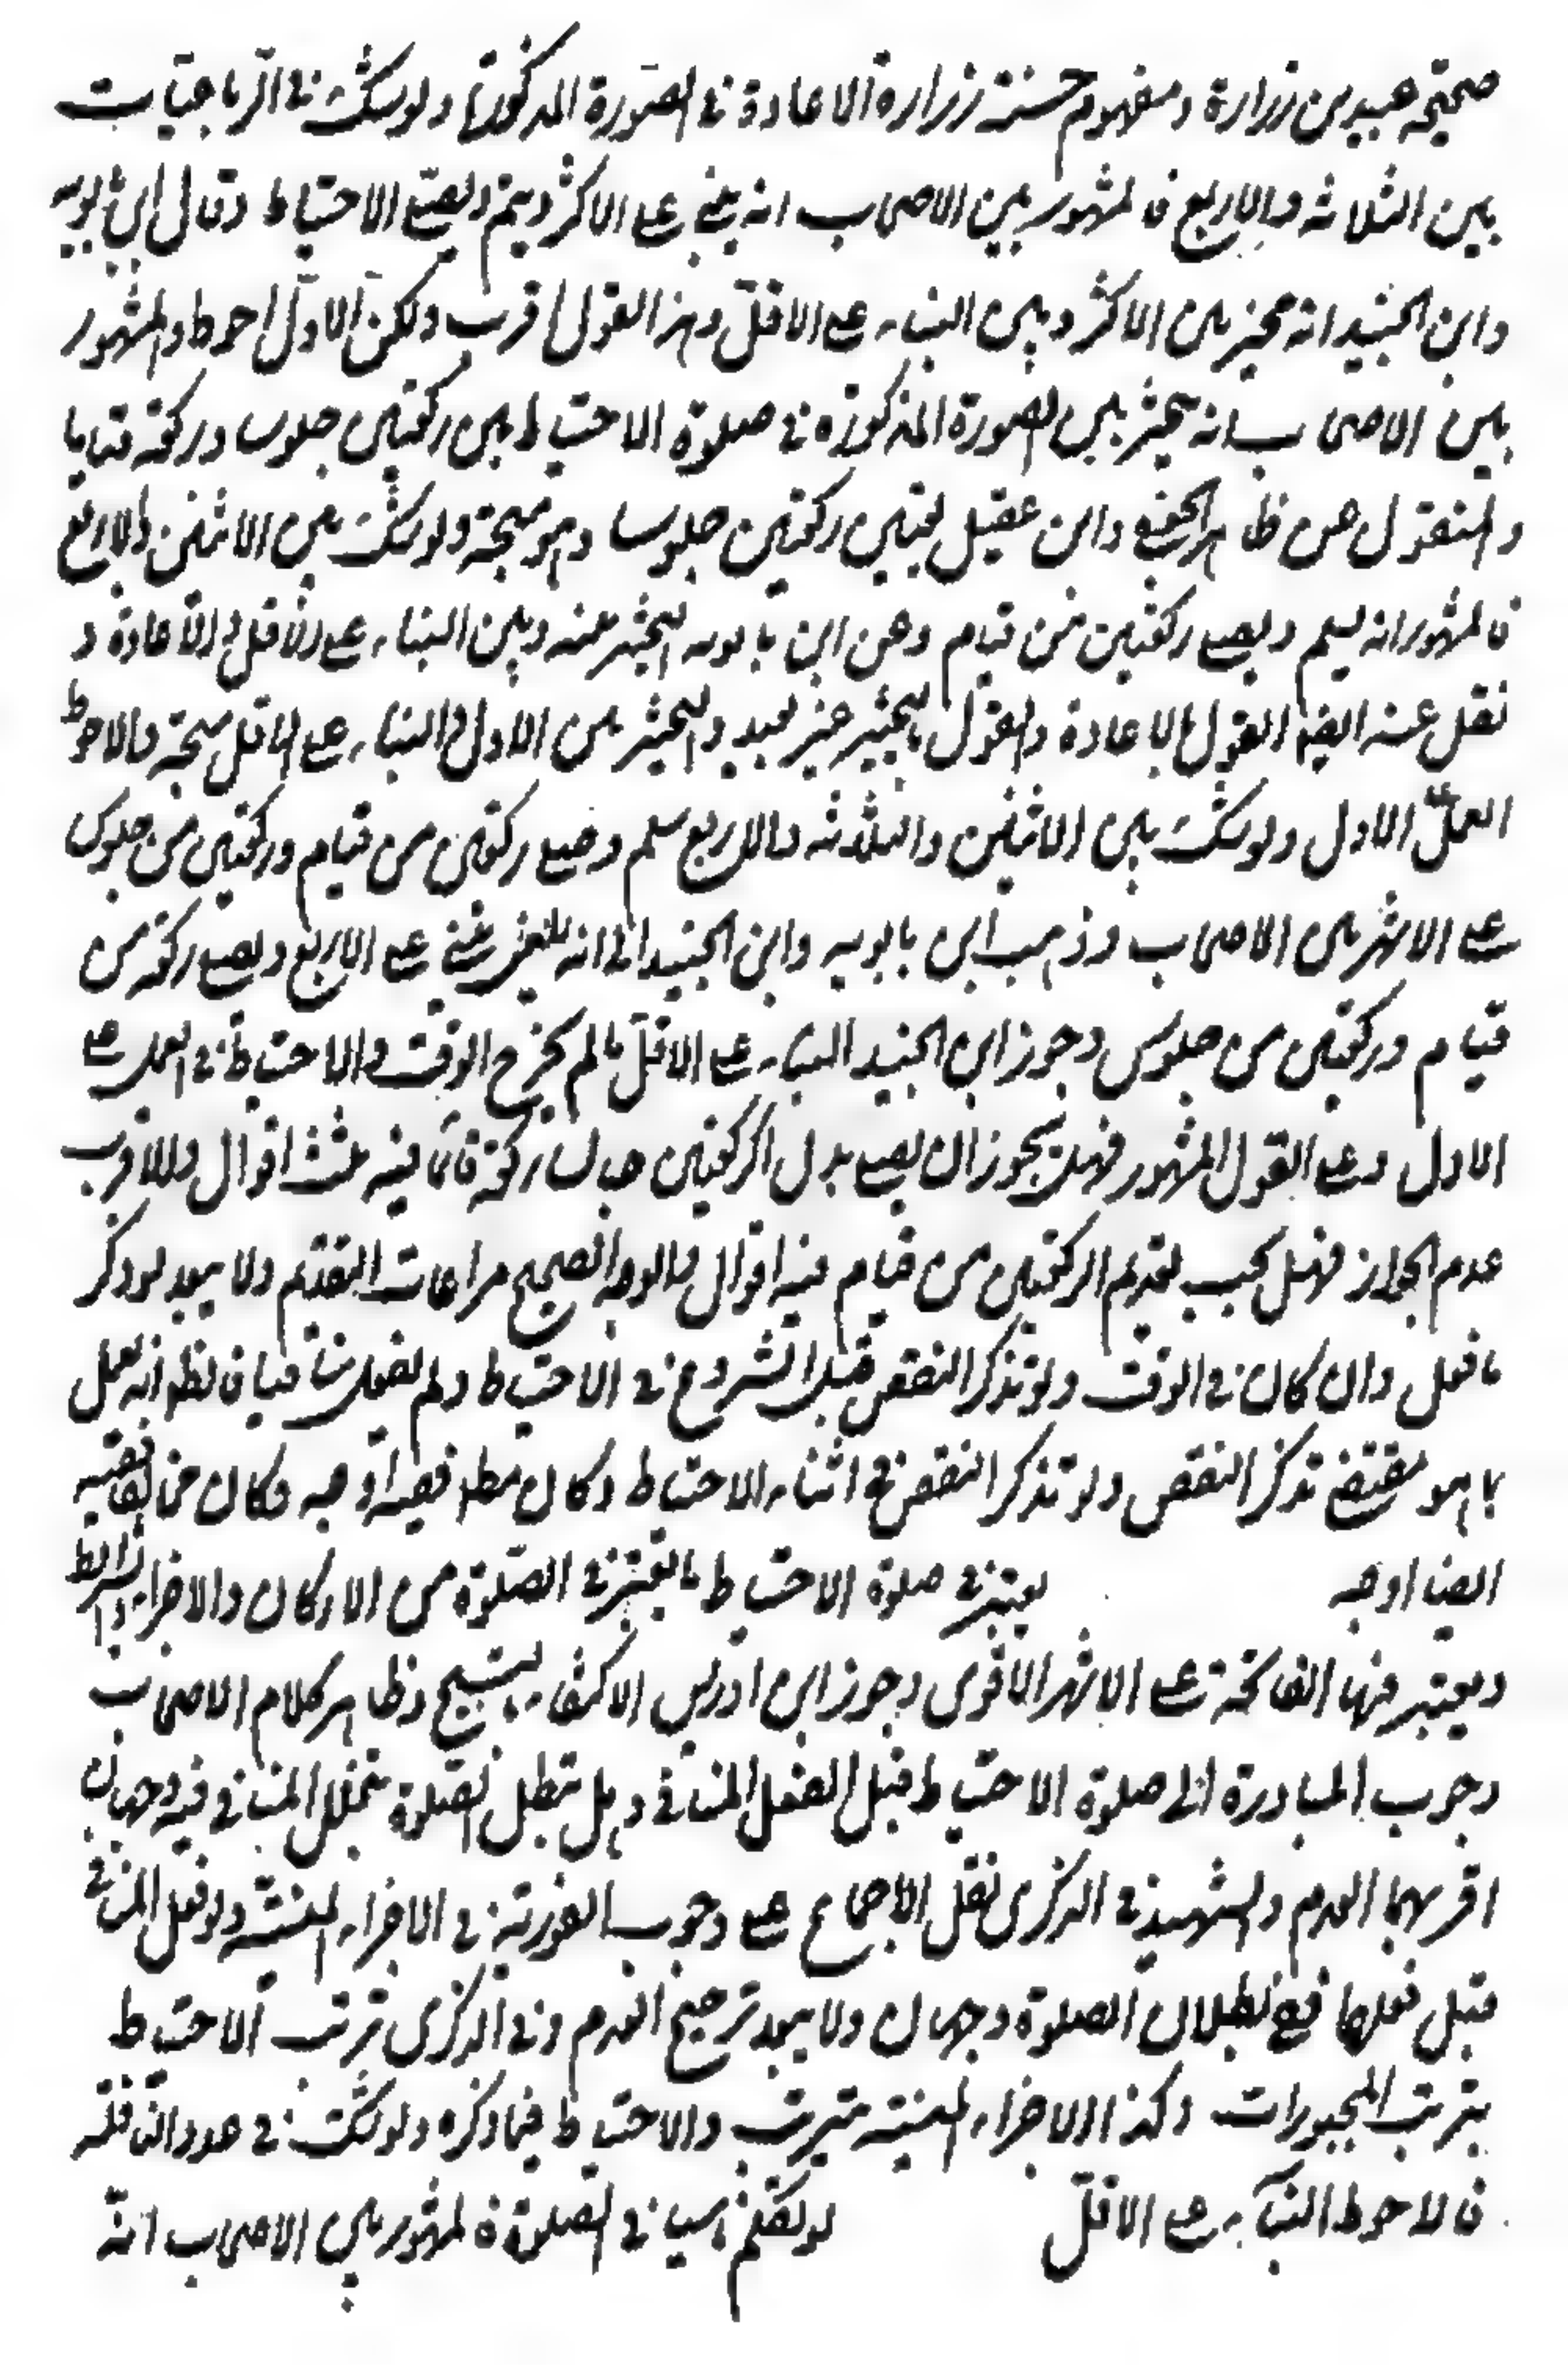 صحيحة عبيد بن زرارة ومفهوم حسنة زرارة الاعادة في الصورة المذكورة ولو شك في الرباعيات
بين الثلاثة والاربع فالمشهور بين الاصحاب انه يبني على الاكثر ويتم ويصلي الاحتياط وقال ابن بابويه
وابن الجنيد انه مخير بين الاكثر وبين البناء على الاقل وهذا القول اقرب ولكن الاول احوط والمشهور
بين الاصحاب انه يتخير بين الصورة المذكورة في صلوة الاحتياط بين ركعتين جلوسا وركعة قياما
والمنقول عن ظاهر الجعفي وابن عقيل تعيين ركعتين جلوسا وهو متجه ولو شك بين الاثنين والاربع
فالمشهور انه يسلم ويصلي ركعتين من قيام وعن ابن بابويه التخيير بينه وبين البناء على الاقل والاعادة و
نقل عنه ايضا القول بالاعادة والقول بالتخيير غير بعيد والتخيير بين الاول والبناء على الاقل متجه والاحوط
العمل على الاول ولو شك بين الاثنين والثلاثة والاربع سلم وصلى ركعتين من قيام وركعتين من جلوس
على الاشهر بين الاصحاب وذهب ابن بابويه وابن الجنيد الى انه يبني على الاربع ويصلي ركعة من
قيام وركعتين من جلوس وجوز ابن الجنيد البناء على الاقل ما لم يخرج الوقت والاحتياط في العمل على
الاول وعلى القول المشهور فهل يجوز ان يصلي بدل الركعتين جالسا ركعة قائما فيه ثلث اقوال والاقرب
عدم الجواز وهل يجب تقديم الركعتين من قيام فيه اقوال والوجه الصحيح مراعات التقديم ولا يعيد لو ذكر
ما فعل وان كان في الوقت ولو تذكر النقص قبل الشروع في الاحتياط ولم يفعل منافيا فالظ انه يعمل
بما هو مقتضى تذكر النقص ولو تذكر النقص في اثناء الاحتياط وكان مطابقا ففيه اوجه وكان مخالفا ففيه
ايضا اوجه يعتبر في صلوة الاحتياط ما يعتبر في الصلوة من الاركان والاجزاء والشرائط
ويعتبر فيها الفاتحة على الاشهر الاقوى وجوز ابن ادريس الاكتفاء بالتسبيح وظاهر كلام الاصحاب
وجوب المبادرة الى صلوة الاحتياط قبل الفعل المنافي وهل تبطل الصلوة بتخلل المنافي فيه وجهان
اقربهما العدم والشهيد في الذكرى نقل الاجماع على وجوب الفورية في الاجزاء المنسية ولو فعل المنافي
قبل فعلها ففي بطلان الصلوة وجهان ولا يبعد ترجيح العدم وفي الذكرى ترتب الاحتياط
بترتب المجبورات وكذا الاجزاء المنسية تترتب والاحتياط فيما ذكره ولو شك في عدد النافلة
فالاحوط البناء على الاقل لو تكلم ناسيا في الصلوة فالمشهور بين الاصحاب انه